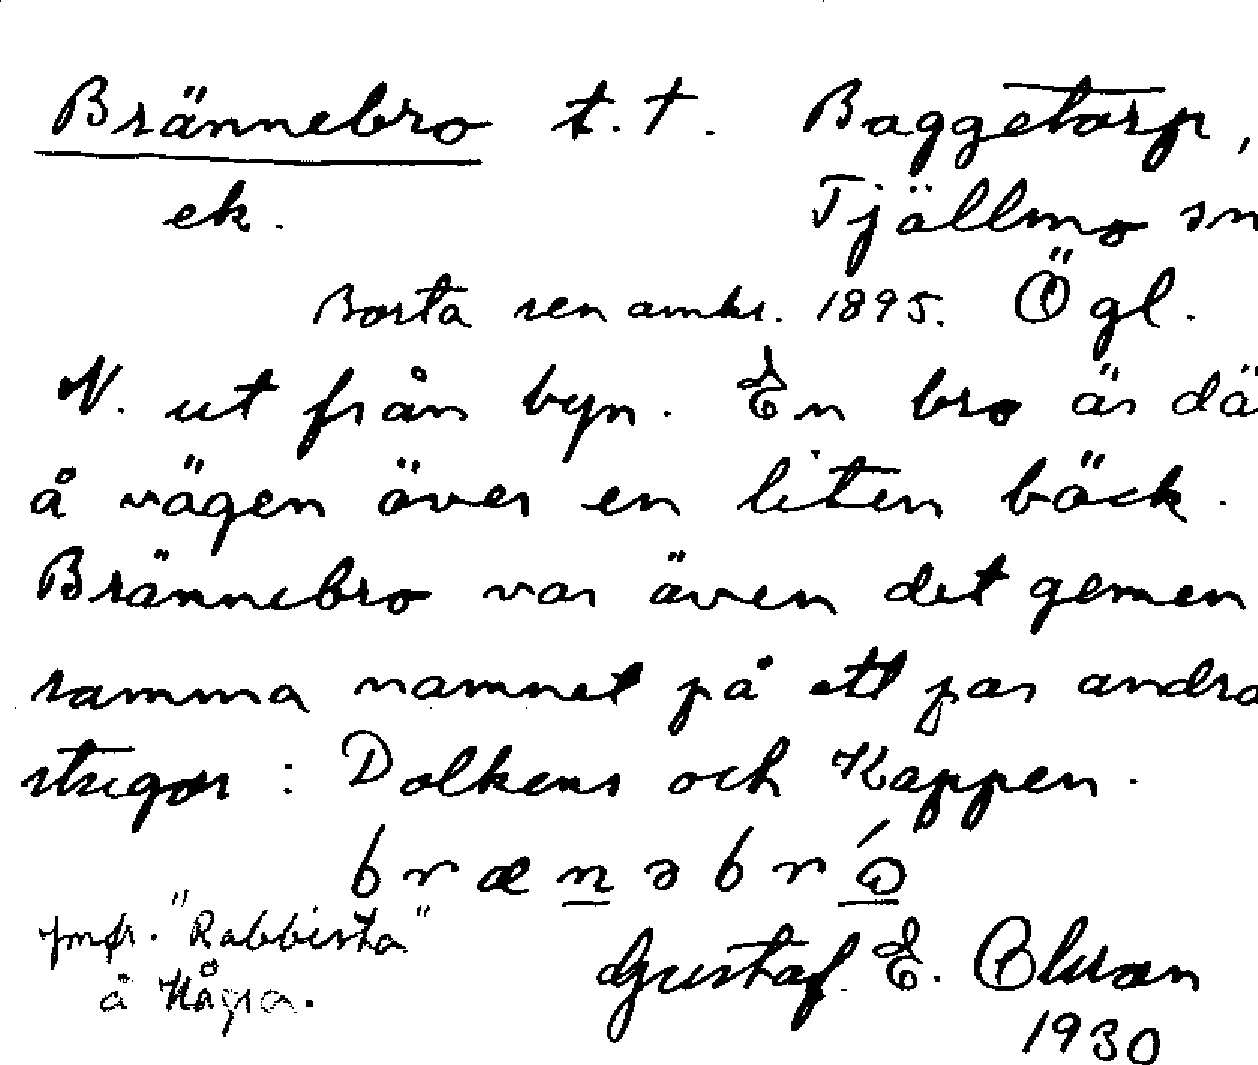 Brännebro t.t. Baggetorp,
ek. Tjällmo sn
Borta sen omkr. 1895. Ögl.
N. ut från byn. En bro är dä
å vägen över en liten bäck.
Brännebro var även det gemen
samma namnet på ett par andra
stugor: Dolkens och Kappen.
brænəbró
jmfr. "Rabbista"
å Hågra.
Gustaf E. Olson
1930